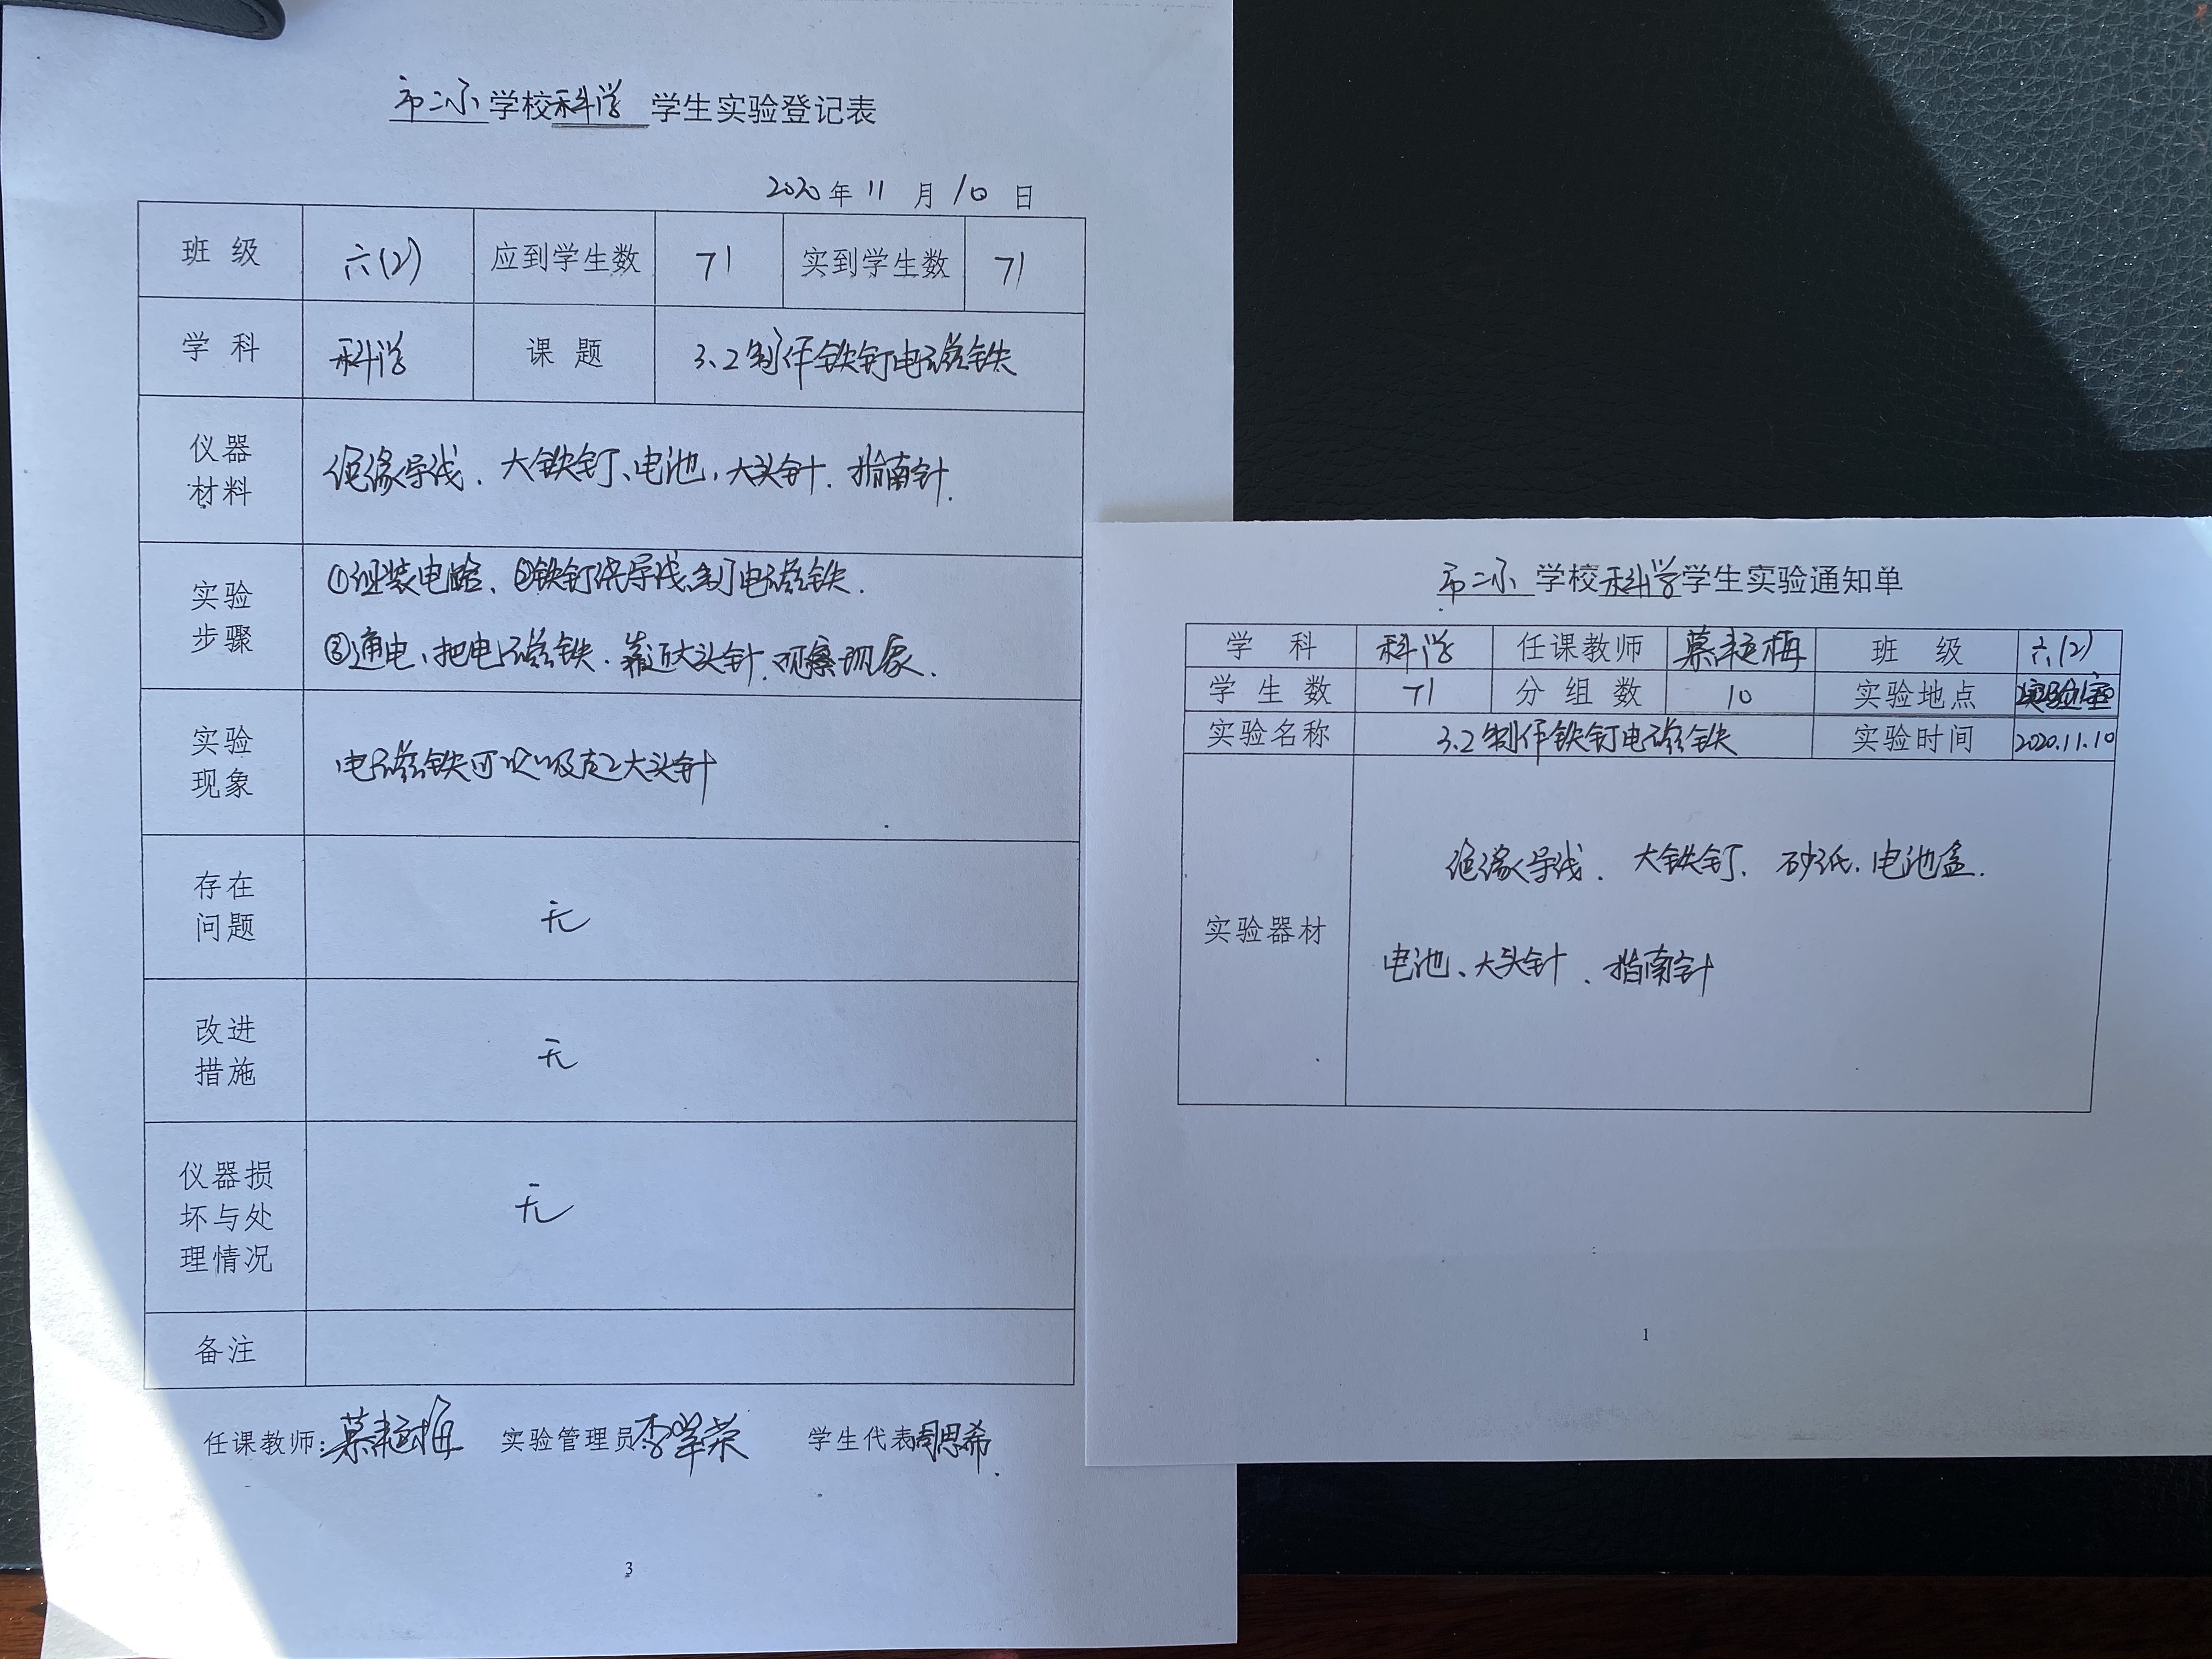 市二小 学校 科学 学生实验登记表
2020 年 11 月 10 日
班 级 六(2) 应到学生数 71 实到学生数 71
学 科 科学 课 题 3.2制作铁钉电磁铁
仪器
材料
绝缘导线、大铁钉、电池、大头针、指南针.
实验
步骤
①组装电路、②铁钉绕导线,制电磁铁.
③通电、把电磁铁.靠近大头针,观察现象.
实验
现象
电磁铁可以吸起大头针
存在
问题
无
改进
措施
无
仪器损
坏与处
理情况
无
备注
任课教师: 实验管理员 李学荣 学生代表 周思希.
3
市二小 学校 科学 学生实验通知单
学 科 科学 任课教师 班 级 六(2)
学 生 数 71 分 组 数 10 实验地点 实验室
实验名称 3.2制作铁钉电磁铁 实验时间 2020.11.10
实验器材
绝缘导线、大铁钉、砂纸、电池盒.
电池、大头针、指南针
1